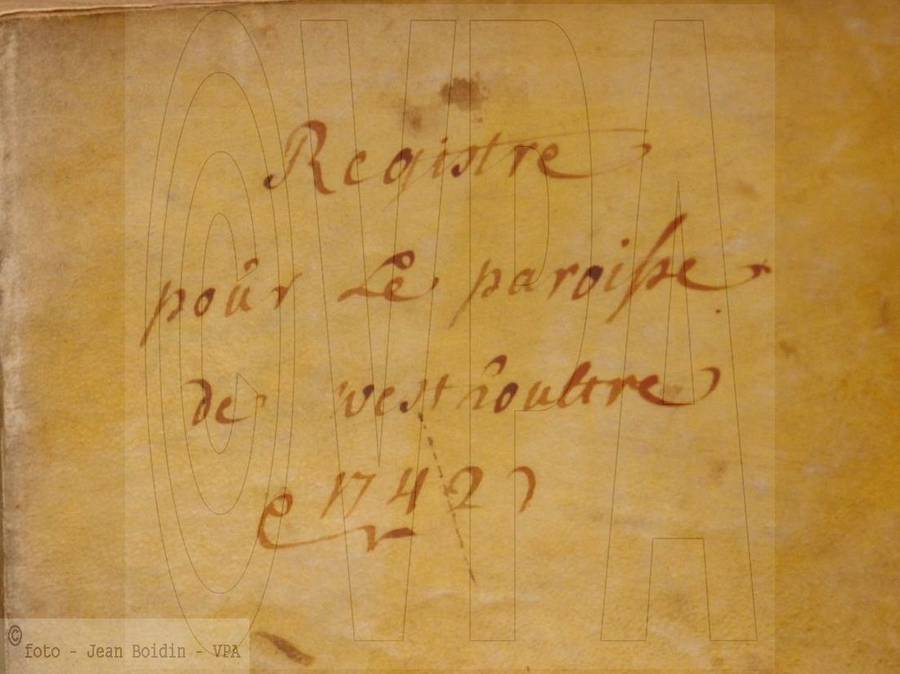 Registre
poûr Le paroisse
de westhoultre
1742
©VPA
© foto - Jean Boidin - VPA